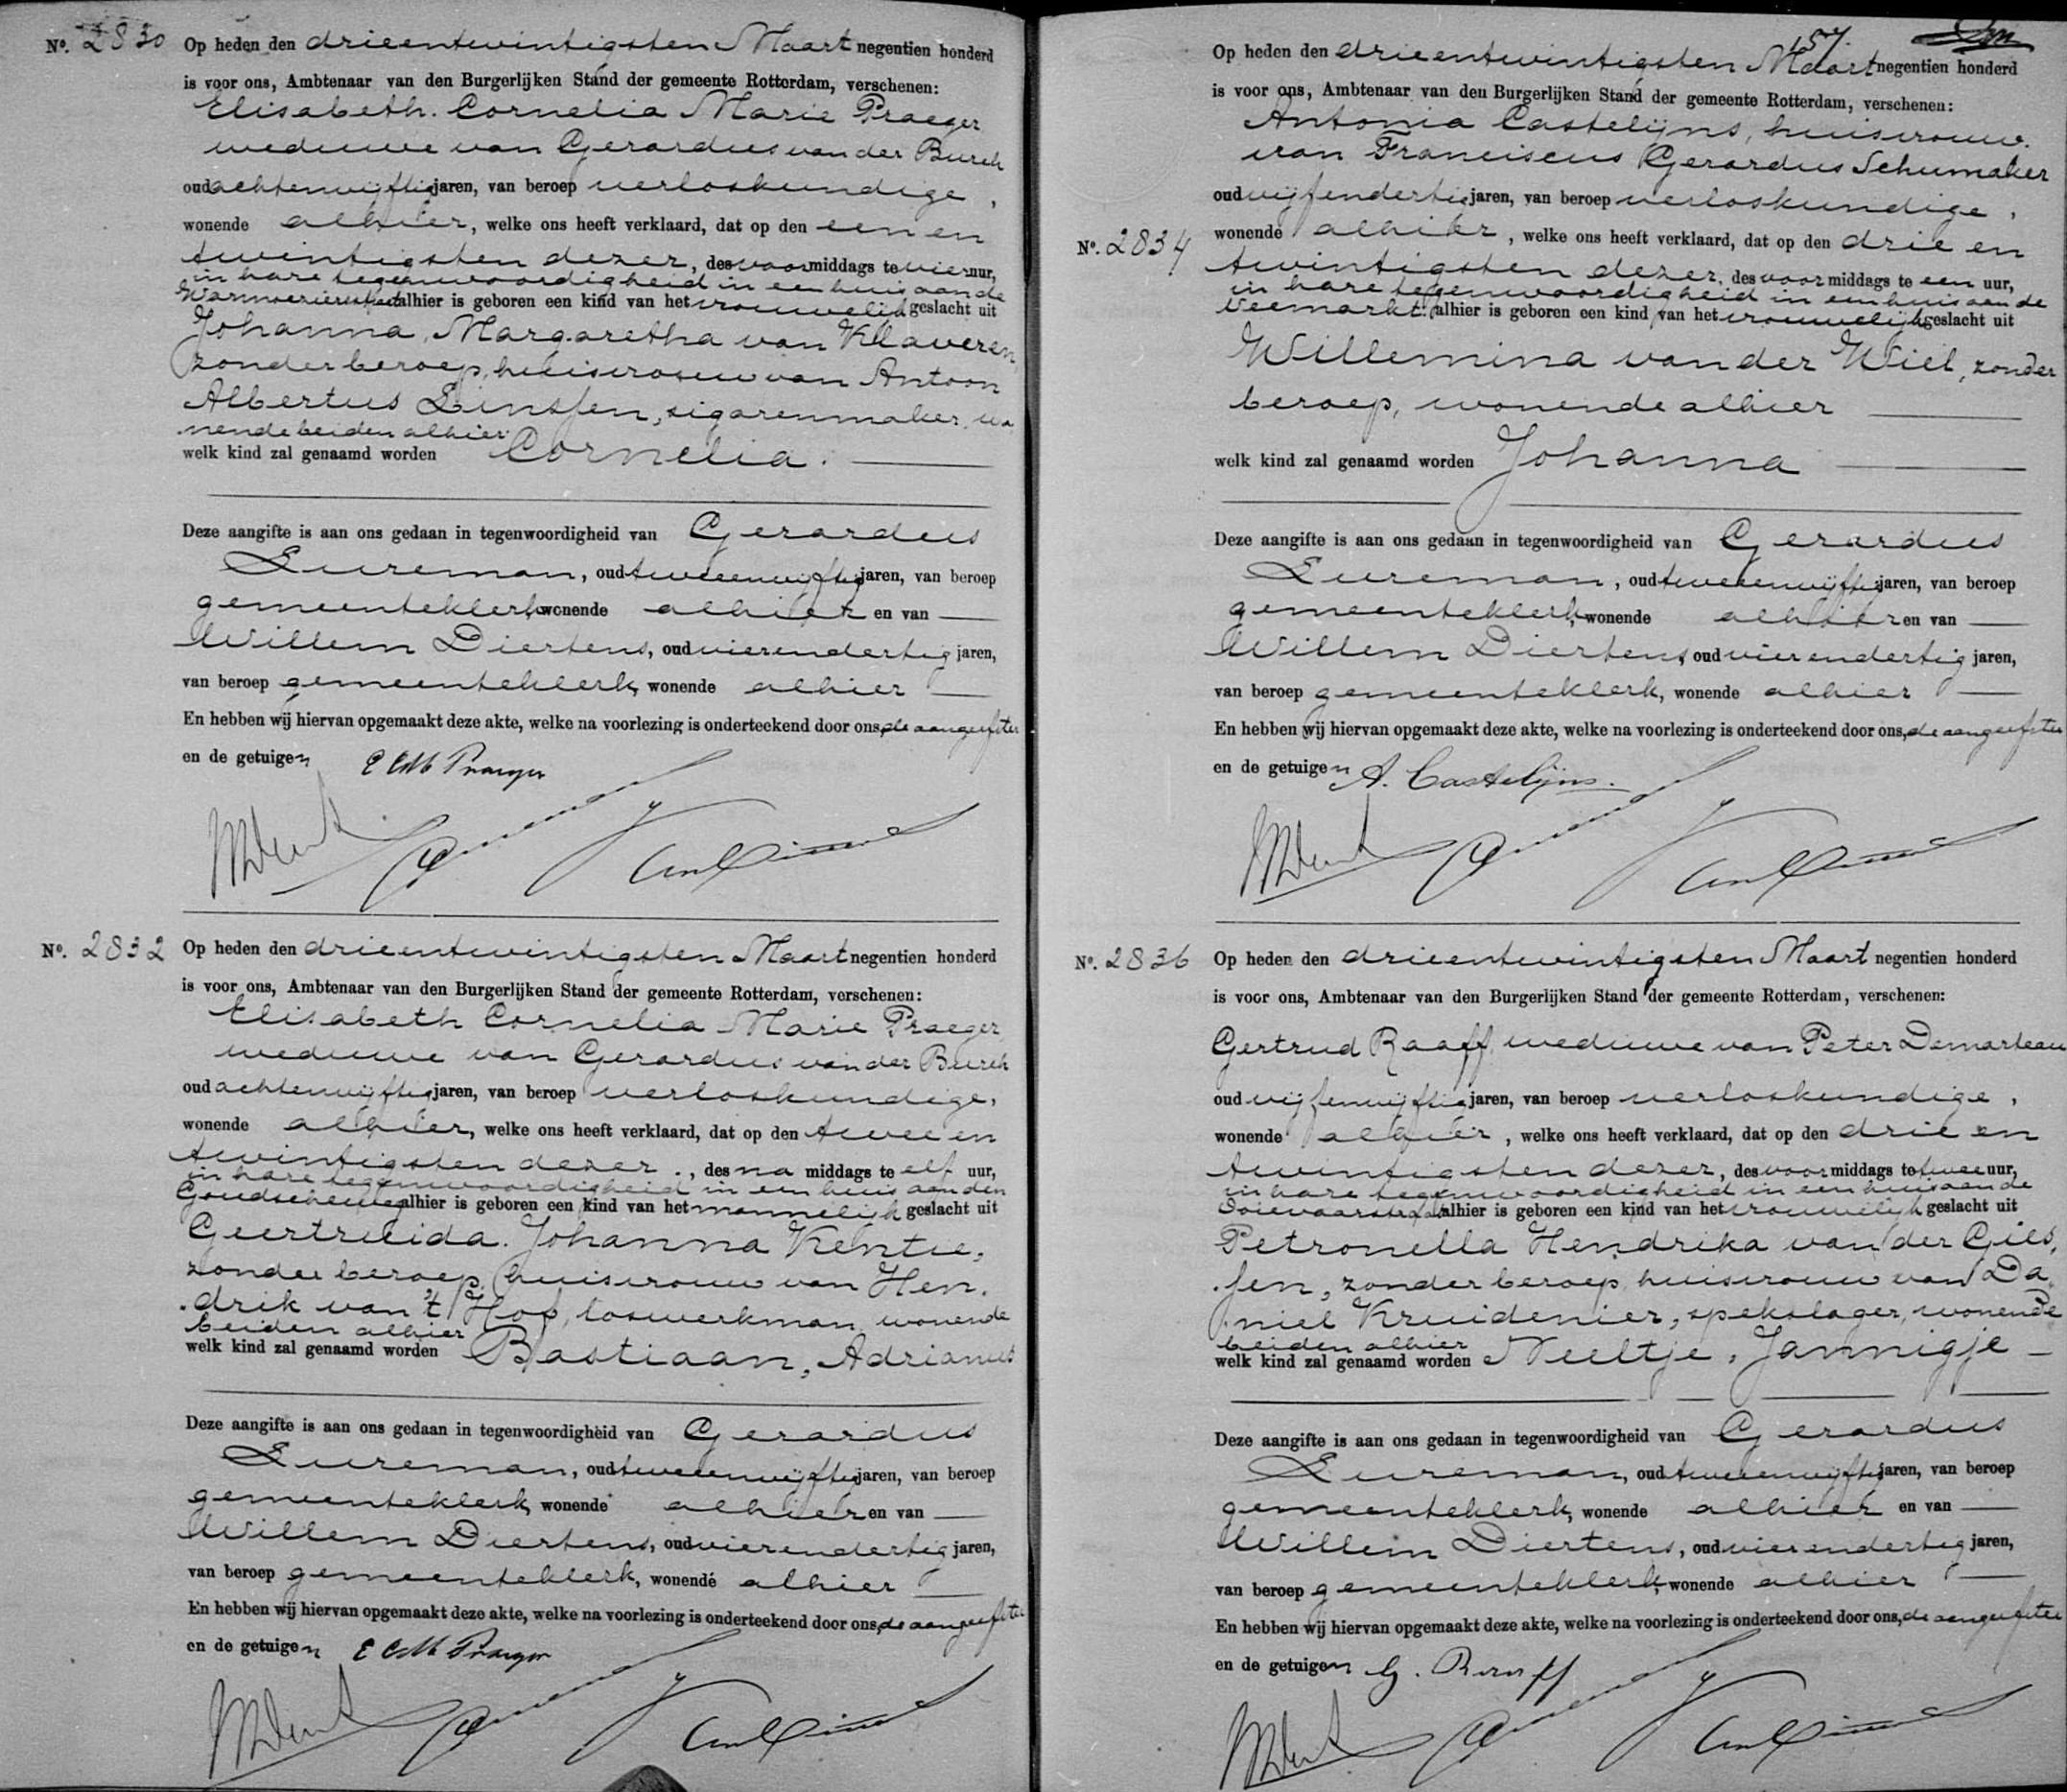 No. 2830 Op heden den drieentwintigsten Maart negentien honderd
is voor ons, Ambtenaar van den Burgerlijken Stand der gemeente Rotterdam, verschenen:
Elisabeth. Cornelia Marie Praeger
weduwe van Gerardus van der Burch
oud achtenvijftig jaren, van beroep verloskundige,
wonende alhier, welke ons heeft verklaard, dat op den een en
twintigsten dezer, des voormiddags te vier uur,
in hare tegenwoordigheid in een huis aan de
alhier is geboren een kind van het vrouwelijk geslacht uit
Johanna, Margaretha van Klaveren,
zonder beroep, huisvrouw van Antoon
Albertus Linssen, sigarenmaker, wo
nende beiden alhier
welk kind zal genaamd worden Cornelia.
Deze aangifte is aan ons gedaan in tegenwoordigheid van Gerardus
Lureman, oud tweeenvijftig jaren, van beroep
gemeenteklerk, wonende alhier en van
Willem Diertens, oud vierendertig jaren,
van beroep gemeenteklerk, wonende alhier
En hebben wij hiervan opgemaakt deze akte, welke na voorlezing is onderteekend door ons, de aangeefster
en de getuigen E C M Praeger
No. 2832 Op heden den drieentwintigsten Maart negentien honderd
is voor ons, Ambtenaar van den Burgerlijken Stand der gemeente Rotterdam, verschenen:
Elisabeth Cornelia Marie Praeger
weduwe van Gerardus van der Burch
oud achtenvijftig jaren, van beroep verloskundige,
wonende alhier, welke ons heeft verklaard, dat op den twee en
twintigsten dezer., des na middags te elf uur,
in hare tegenwoordigheid in een huis aan den
Goudscheweg alhier is geboren een kind van het mannelijk geslacht uit
Geertruida. Johanna Kentie,
zonder beroep, huisvrouw van Hen.
drik van 't Hof, loswerkman, wonende
beiden alhier
welk kind zal genaamd worden Bastiaan, Adrianus
Deze aangifte is aan ons gedaan in tegenwoordigheid van Gerardus
Lureman, oud tweeenvijftig jaren, van beroep
gemeenteklerk, wonende alhier en van
Willem Diertens, oud vierendertig jaren,
van beroep gemeenteklerk, wonende alhier
En hebben wij hiervan opgemaakt deze akte, welke na voorlezing is onderteekend door ons, de aangeefster
en de getuigen E C M Praeger
157.
No. 2834
Op heden den drieentwintigsten Maart negentien honderd
is voor ons, Ambtenaar van den Burgerlijken Stand der gemeente Rotterdam, verschenen:
Antonia Castelijns, huisvrouw.
van Franciscus Gerardus Schumaker
oud vijfendertig jaren, van beroep verloskundige,
wonende alhier, welke ons heeft verklaard, dat op den drie en
twintigsten dezer, des voormiddags te een uur,
in hare tegenwoordigheid in een huis aan de
Veemarkt alhier is geboren een kind van het vrouwelijk geslacht uit
Willemina van der Wiel, zonder
beroep, wonende alhier
welk kind zal genaamd worden Johanna
Deze aangifte is aan ons gedaan in tegenwoordigheid van Gerardus
Lureman, oud tweeenvijftig jaren, van beroep
gemeenteklerk, wonende alhier en van
Willem Diertens, oud vierendertig jaren,
van beroep gemeenteklerk, wonende alhier
En hebben wij hiervan opgemaakt deze akte, welke na voorlezing is onderteekend door ons, de aangeefster
en de getuigen A. Castelijns.
No. 2836 Op heden den drieentwintigsten Maart negentien honderd
is voor ons, Ambtenaar van den Burgerlijken Stand der gemeente Rotterdam, verschenen:
Gertrud Raaff, weduwe van Peter Demarteau
oud vijfenvijftig jaren, van beroep verloskundige,
wonende alhier, welke ons heeft verklaard, dat op den drie en
twintigsten dezer, des voormiddags te twee uur,
in hare tegenwoordigheid in een huis aan de
Ooievaarstraat alhier is geboren een kind van het vrouwelijk geslacht uit
Petronella Hendrika van der Gies,
sen, zonder beroep, huisvrouw van Da,
niel Kruidenier, spekslager, wonende
beiden alhier
welk kind zal genaamd worden Neeltje, Jannigje
Deze aangifte is aan ons gedaan in tegenwoordigheid van Gerardus
Lureman, oud tweeenvijftig jaren, van beroep
gemeenteklerk, wonende alhier en van
Willem Diertens, oud vierendertig jaren,
van beroep gemeenteklerk, wonende alhier
En hebben wij hiervan opgemaakt deze akte, welke na voorlezing is onderteekend door ons, de aangeefster
en de getuigen G. Raaff